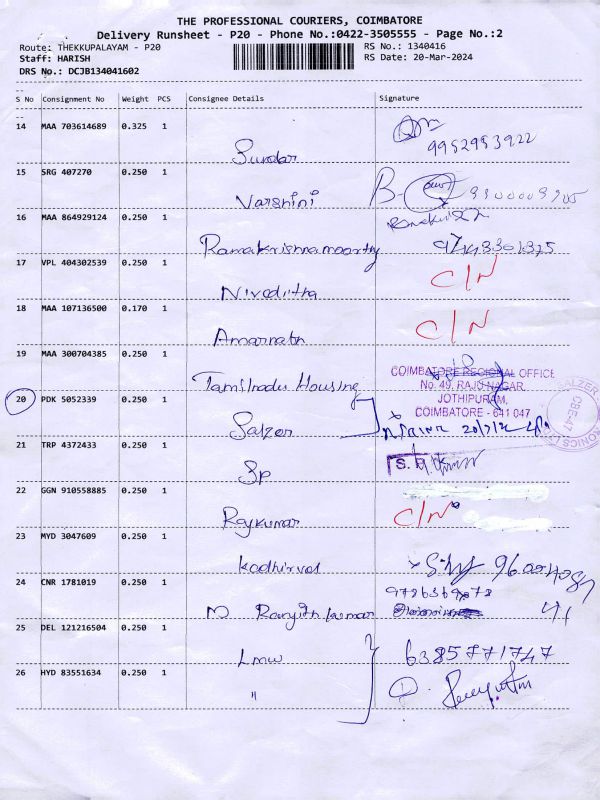 THE PROFESSIONAL COURIERS, COIMBATORE
Delivery Runsheet - P20 - Phone No.:0422-3505555 - Page No.:2
Route: THEKKUPALAYAM - P20 RS No.: 1340416
Staff: HARISH RS Date: 20-Mar-2024
DRS No.: DCJB134041602
S No Consignment No Weight PCS Consignee Details Signature
14 MAA 703614689 0.325 1
9952953922
Sundar
15 SRG 407270 0.250 1
Varshini
16 MAA 864929124 0.250 1
Ramakrishnamoorthy
17 VPL 404302539 0.250 1 C/N
Niveditha
18 MAA 107136500 0.170 1 C/N
Amarnath
19 MAA 300704385 0.250 1
COIMBATORE REGIONAL OFFICE
Tamilnadu Housing No. 49, RAJU NAGAR,
20 PDK 5052339 0.250 1 JOTHIPURAM,
COIMBATORE - 641 047
Salzer
SALZER CBE-47
21 TRP 4372433 0.250 1
Sp
22 GGN 910558885 0.250 1
Rajkumar C/N
23 MYD 3047609 0.250 1
Kadhirvel
24 CNR 1781019 0.250 1
M Ranjith kumar
25 DEL 121216504 0.250 1
Lmw 6385771747
26 HYD 83551634 0.250 1
"